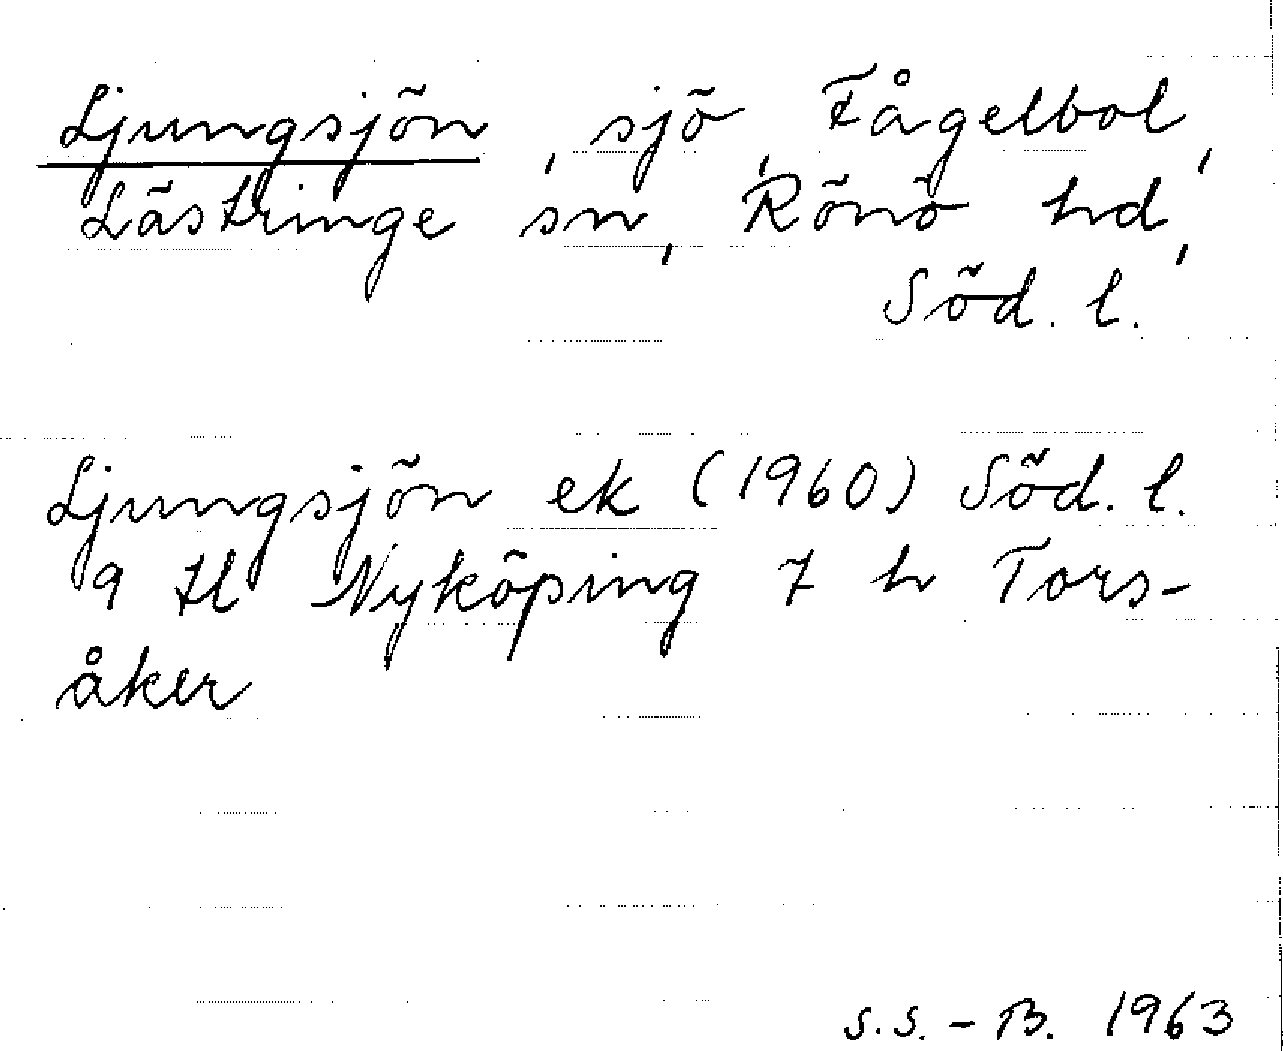 Ljungsjön, sjö, Fågelbol,
Lästringe sn, Rönö hd,
Söd. l.
Ljungsjön ek (1960) Söd. l.
9 H Nyköping 7 h Tors-
åker
S.S. - B. 1963